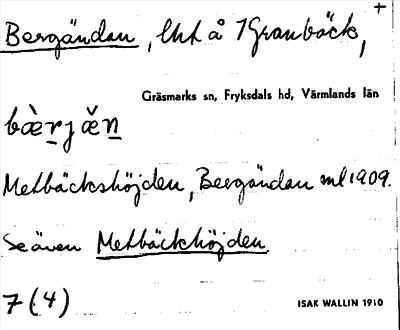 Bergändan, Uht å 7 Granbäck,
Gräsmarks sn, Fryksdals hd, Värmlands län
bæ̀rjæ̌n
Metbäckshöjden, Bergändan ml 1909.
Se även Metbäckshöjden
7 (4)
ISAK WALLIN 1910